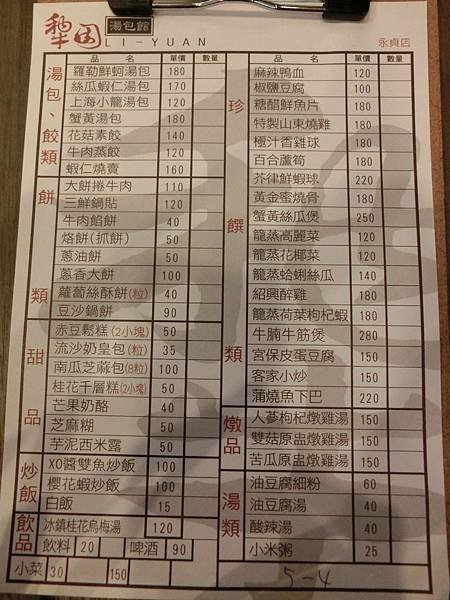 犂園 湯包館
LI-YUAN 永貞店
品名 單價 數量
湯包、餃類
羅勒鮮蚵湯包 180
絲瓜蝦仁湯包 170
上海小籠湯包 120
蟹黃湯包 180
花菇素餃 140
牛肉蒸餃 120
蝦仁燒賣 160
餅類
大餅捲牛肉 110
三鮮鍋貼 120
牛肉餡餅 40
烙餅(抓餅) 50
蔥油餅 50
蔥香大餅 100
蘿蔔絲酥餅(粒) 40
豆沙鍋餅 90
甜品
赤豆鬆糕(2小塊) 50
流沙奶皇包(粒) 35
南瓜芝蔴包(8粒) 100
桂花千層糕(2小塊) 50
芒果奶酪 40
芝麻糊 50
芋泥西米露 50
炒飯
XO醬雙魚炒飯 100
櫻花蝦炒飯 100
白飯 15
飲品
冰鎮桂花烏梅湯 120
飲料 20 啤酒 90
小菜 30 150
品名 單價 數量
珍饌類
麻辣鴨血 120
椒鹽豆腐 100
糖醋鮮魚片 180
特製山東燒雞 180
極汁香雞球 180
百合蘆筍 180
芥律鮮蝦球 220
黃金蜜燒骨 180
蟹黃絲瓜煲 250
籠蒸高麗菜 120
籠蒸花椰菜 120
籠蒸蛤蜊絲瓜 140
紹興醉雞 180
籠蒸荷葉枸杞蝦 180
牛腩牛筋煲 280
宮保皮蛋豆腐 150
客家小炒 150
蒲燒魚下巴 220
燉品
人蔘枸杞燉雞湯 150
雙菇原盅燉雞湯 150
苦瓜原盅燉雞湯 150
湯類
油豆腐細粉 60
油豆腐湯 40
酸辣湯 40
小米粥 25
5-4